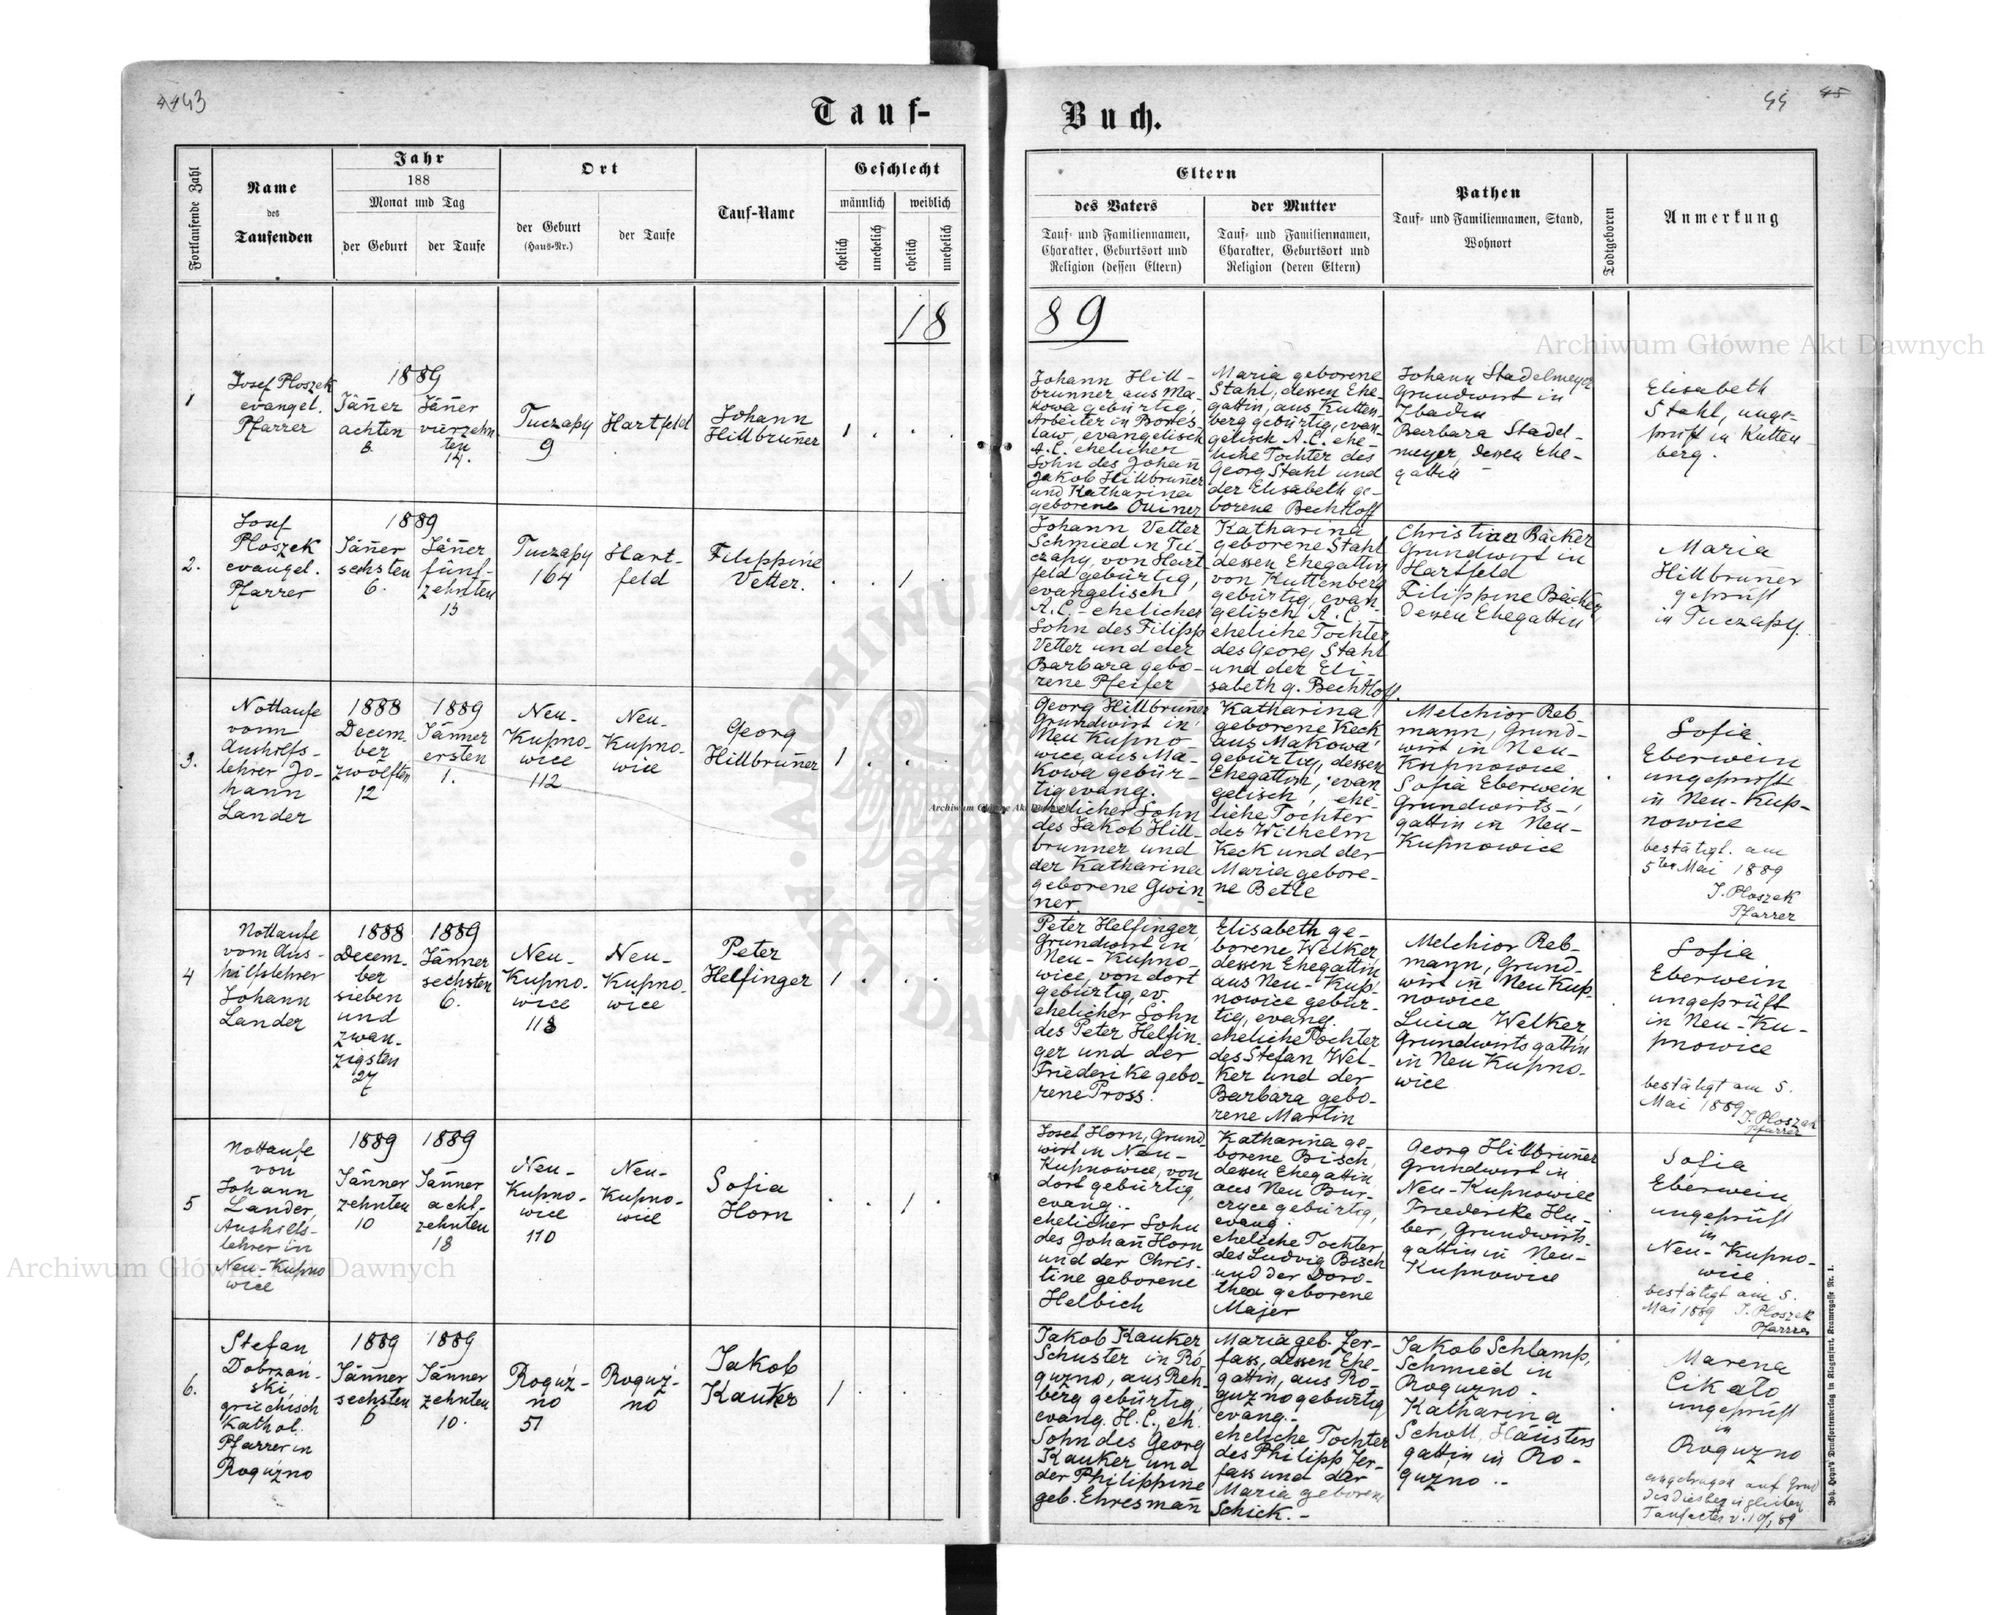 43
Tauf-
Buch.
44 45
Fortlaufende Zahl
Name
des
Taufenden
Jahr
188
Monat und Tag
der Geburt
der Taufe
Ort
der Geburt
(Haus-Nr.)
der Taufe
Tauf-Name
Geschlecht
männlich
weiblich
ehelich
unehelich
ehelich
unehelich
Eltern
des Vaters
Tauf- und Familiennamen,
Charakter, Geburtsort und
Religion (dessen Eltern)
der Mutter
Tauf- und Familiennamen,
Charakter, Geburtsort und
Religion (deren Eltern)
Pathen
Tauf- und Familiennamen, Stand,
Wohnort
Todtgeboren
Anmerkung
18
89
1
Josef Ploszek
evangel.
Pfarrer
1889
Jäner
achten
8.
Jäner
vierzehn
ten
14.
Tuczapy
9
Hartfeld
Johann
Hillbruner
1
Johann Hill-
brunner aus Ma-
kowa gebürtig,
Arbeiter in Borys
law, evangelisch
A.C. ehelicher
Sohn des Johann
Jakob Hillbruner
und Katharina
geborene
Maria geborene
Stahl, dessen Ehe-
gattin, aus Kutten
berg gebürtig, evan-
gelisch A.C. ehe-
liche Tochter des
Georg Stahl und
der Elisabeth ge-
borene Bechtloff
Johann Stadelmeyer
Grundwirt in
Barbara Stadel-
meyer, dessen Ehe-
gattin
Elisabeth
Stahl, unge-
prüft in Kutten
berg.
2.
Josef
Ploszek
evangel.
Pfarrer
1889
Jäner
sechsten
6.
Jäner
fünf-
zehnten
15
Tuczapy
164
Hart-
feld
Filippine
Vetter.
1
Johann Vetter
Schmied in Tu-
czapy, von Hart
feld gebürtig,
evangelisch
A.C.- ehelicher
Sohn des Filipp
Vetter und der
Barbara gebo-
rene Pfeifer
Katharina
geborene Stahl
dessen Ehegattin
von Kuttenberg
gebürtig, evan-
gelisch A.C.-
eheliche Tochter
des Georg Stahl
und der Eli-
sabeth g. Bechtloff.
Christian Bäcker
Grundwirt in
Hartfeld
Filippine Bäcker
dessen Ehegattin
Maria
Hillbruner
geprüft
in Tuczapy.
3.
Nottaufe
vom
Aushilfs-
lehrer Jo-
hann
Lander
1888
Decem-
ber
zwölften
12
1889
Jänner
ersten
1.
Neu-
Kupno-
wice
112
Neu-
Kupno-
wice
Georg
Hillbruner
1
Georg Hillbruner
Grundwirt in
Neu Kupno-
wice, aus Ma-
kowa gebür-
tig evang.
ehelicher Sohn
des Jakob Hill-
brunner und
der Katharina
geborene Gwin-
ner
Katharina
geborene Keck
aus Makowa
gebürtig, dessen
Ehegattin, evan
gelisch, ehe-
liche Tochter
des Wilhelm
Keck und der
Maria gebore-
ne Betle
Melchior Reb-
mann, Grund-
wirt in Neu-
Kupnowice
Sofia Eberwein,
Grundwirts-
gattin in Neu-
Kupnowice
Sofia
Eberwein
ungeprüft
in Neu-Kup-
nowice
bestätigt. am
5ten Mai 1889
J. Ploszek
Pfarrer
4
Nottaufe
vom Aus-
hilfslehrer
Johann
Lander
1888
Decem-
ber
sieben
und
zwan-
zigsten
27
1889
Jänner
sechsten
6.
Neu-
Kupno-
wice
113
Neu-
Kupno-
wice
Peter
Helfinger
1
Peter Helfinger,
Grundwirt in
Neu-Kupno-
wice, von dort
gebürtig, ev.
ehelicher Sohn
des Peter Helfin-
ger und der
Friederike gebo-
rene Pross.
Elisabeth ge-
borene Welker,
dessen Ehegattin
aus Neu-Kup-
nowice gebür-
tig, evang.
eheliche Tochter
des Stefan Wel-
ker und der
Barbara gebo-
rene Martin
Melchior Reb-
mann, Grund-
wirt in Neu Kup-
nowice
Lucia Welker,
Grundwirtsgattin
in Neu Kupno-
wice
Sofia
Eberwein
ungeprüft
in Neu-Ku-
pnowice
bestätigt am 5.
Mai 1889
J. Ploszek
Pfarrer
5
Nottaufe
von
Johann
Lander,
Aushilfs-
lehrer in
Neu-Kupno
wice
1889
Jänner
zehnten
10
1889
Jänner
acht-
zehnten
18
Neu-
Kupno-
wice
110
Neu-
Kupno-
wice
Sofia
Horn
1
Josef Horn, Grund
wirt in Neu-
Kupnowice, von
dort gebürtig,
evang..
ehelicher Sohn
des Johann Horn
und der Chris-
tine geborene
Helbich
Katharina ge-
borene Bisch,
dessen Ehegattin,
aus Neu Bur-
czyce gebürtig,
evang.
eheliche Tochter
des Ludvig Bisch
und der Doro-
thea geborene
Majer
Georg Hillbruner
Grundwirt in
Neu-Kupnowice
Friedericke Hu-
ber, Grundwirts-
gattin in Neu-
Kupnowice
Sofia
Eberwein
ungeprüft
in
Neu-Kupno-
wice
bestätigt am 5.
Mai 1889 J. Ploszek
Pfarrer
6.
Stefan
Dobrzań-
ski,
griechisch
kathol.
Pfarrer in
Roguźno
1889
Jänner
sechsten
6
1889
Jänner
zehnten
10.
Roguź-
no
51
Roguź-
no
Jakob
Kauker
1
Jakob Kauker
Schuster in Ro-
guzno, aus Reh-
berg gebürtig,
evang. H.C., eh.
Sohn des Georg
Kauker und
der Philippine
geb. Ehresmann
Maria geb. Zer-
fass, dessen Ehe-
gattin, aus Ro-
guzno gebürtig
evang.-
eheliche Tochter
des Philipp Zer-
fass und der
Maria geborene
Schick.-
Jakob Schlamp,
Schmied in
Roguzno.
Katharina
Scholl, Häuslers
gattin in Ro-
guzno..
Marena
Cikało
ungeprüft
in
Roguzno
eingetragen auf Grund
des diesbezüglichen
Taufactes v. 10/1 89
Joh. Heyn's Drucksortenverlag in Klagenfurt, Kramergasse Nr. 1.
Archiwum Główne Akt Dawnych
Archiwum Główne Akt Dawnych
Archiwum Główne Akt Dawnych